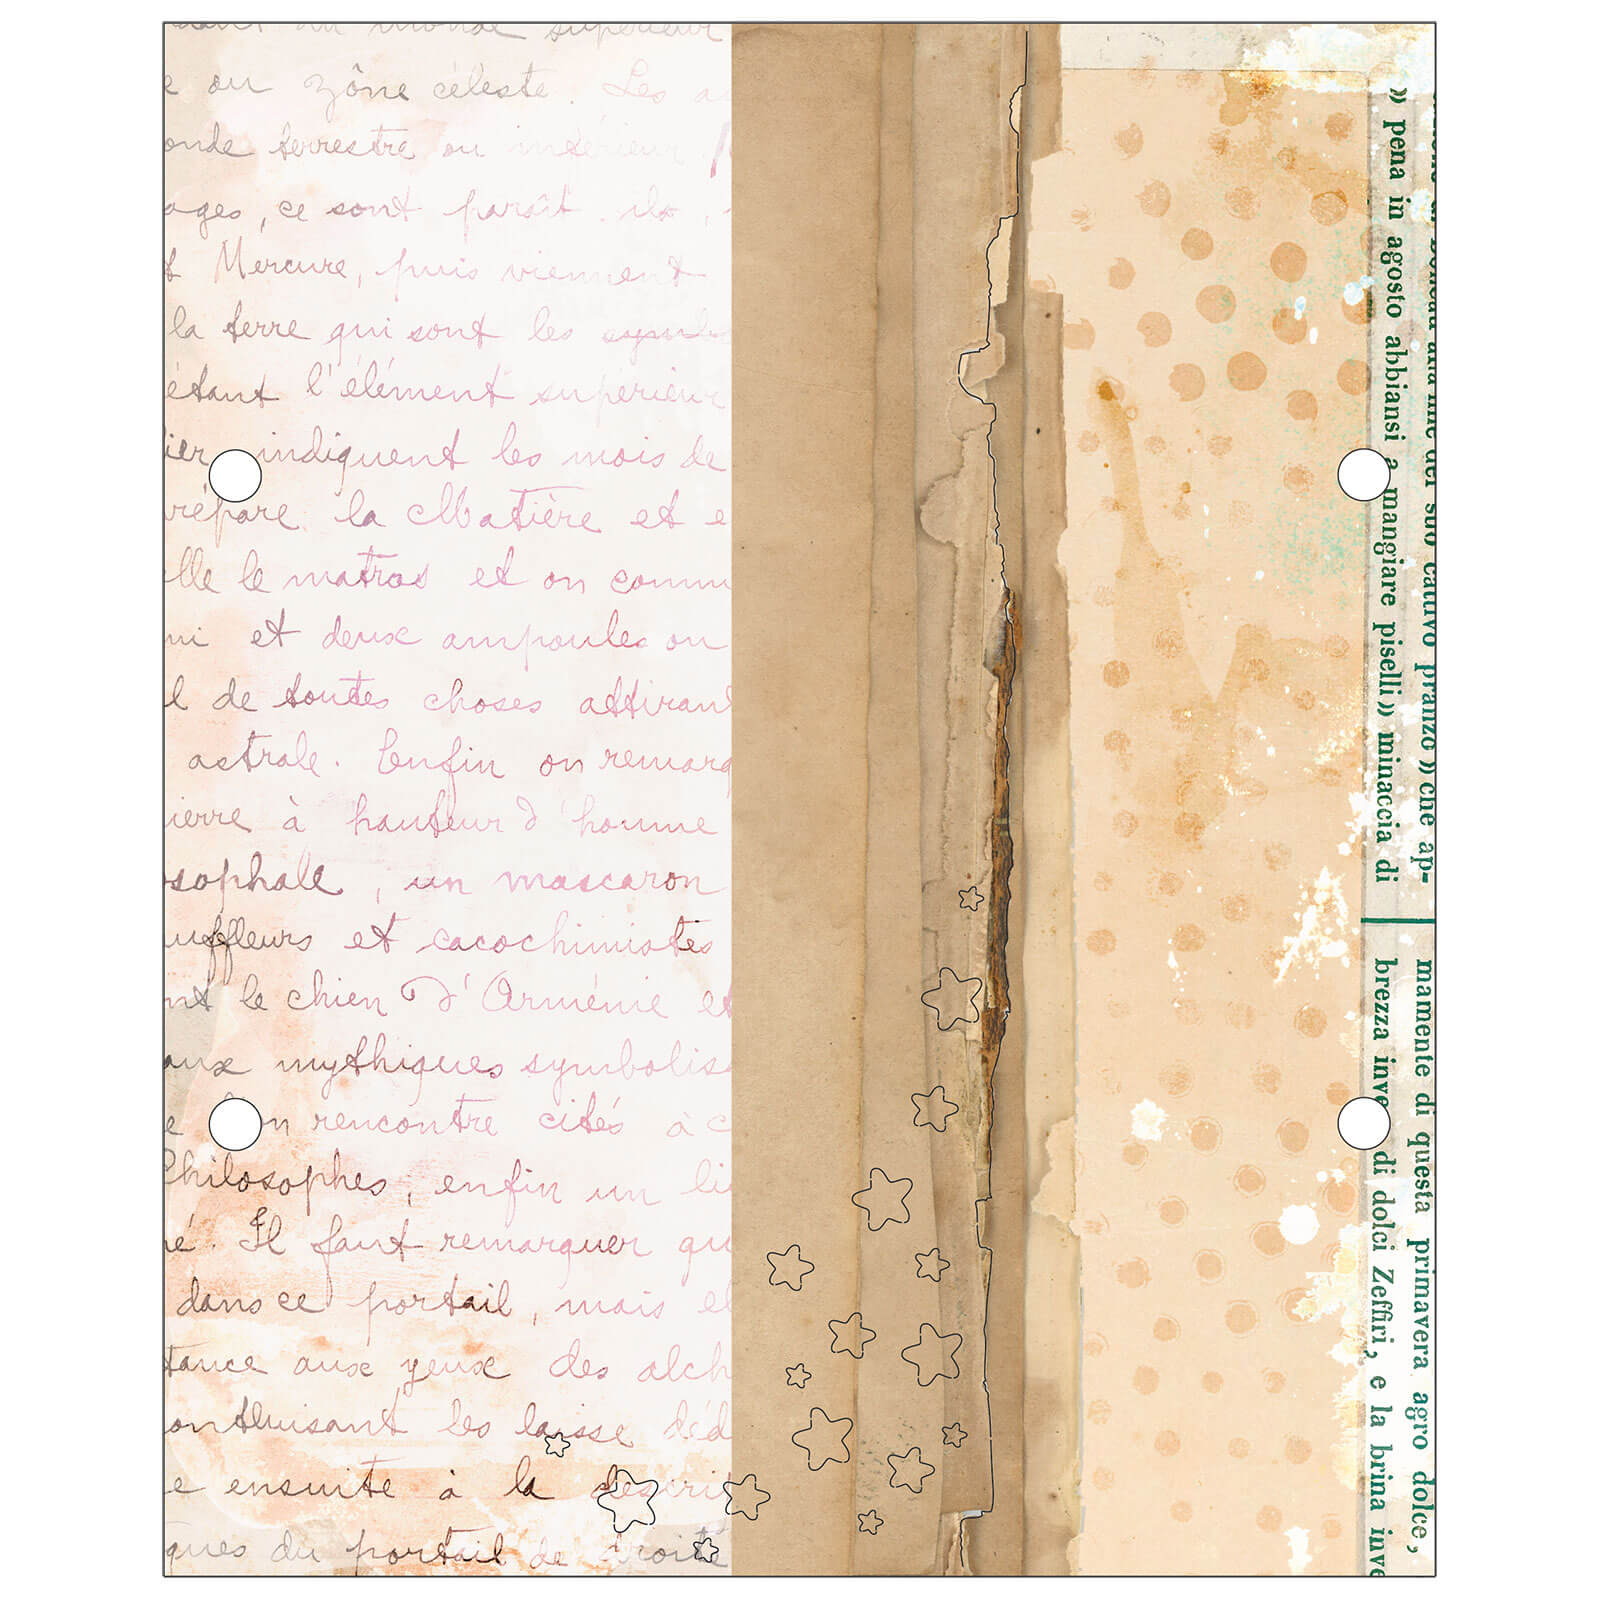 au monde supérieur
e ou zône céleste. Les a
onde terrestre ou intérieur
ages, ce sont paraît-ils,
t Mercure, puis viennent
la terre qui sont les symb
étant l'élément supérieur
ier indiquent les mois de
répare la Matière et e
lle le matras et on comm
ni et deux ampoules ou
l de toutes choses attirant
astrale. Enfin on remarq
ierre à hauteur d'homme
sophale, un mascaron
uffleurs et cacochimistes
nt le chien d'Arménie et
aux mythiques symbolis
e on rencontre cités à c
Philosophes, enfin un li
né. Il faut remarquer qu
dans ce portail, mais el
tance aux yeux des alch
ontluisant les laisse déd
e ensuite à la descrit
ques du portail de droite
del suo cattivo pranzo » che ap-
» pena in agosto abbiansi a mangiare piselli » minaccia di
mamente di questa primavera agro dolce,
brezza inve di dolci Zeffiri, e la brina inve